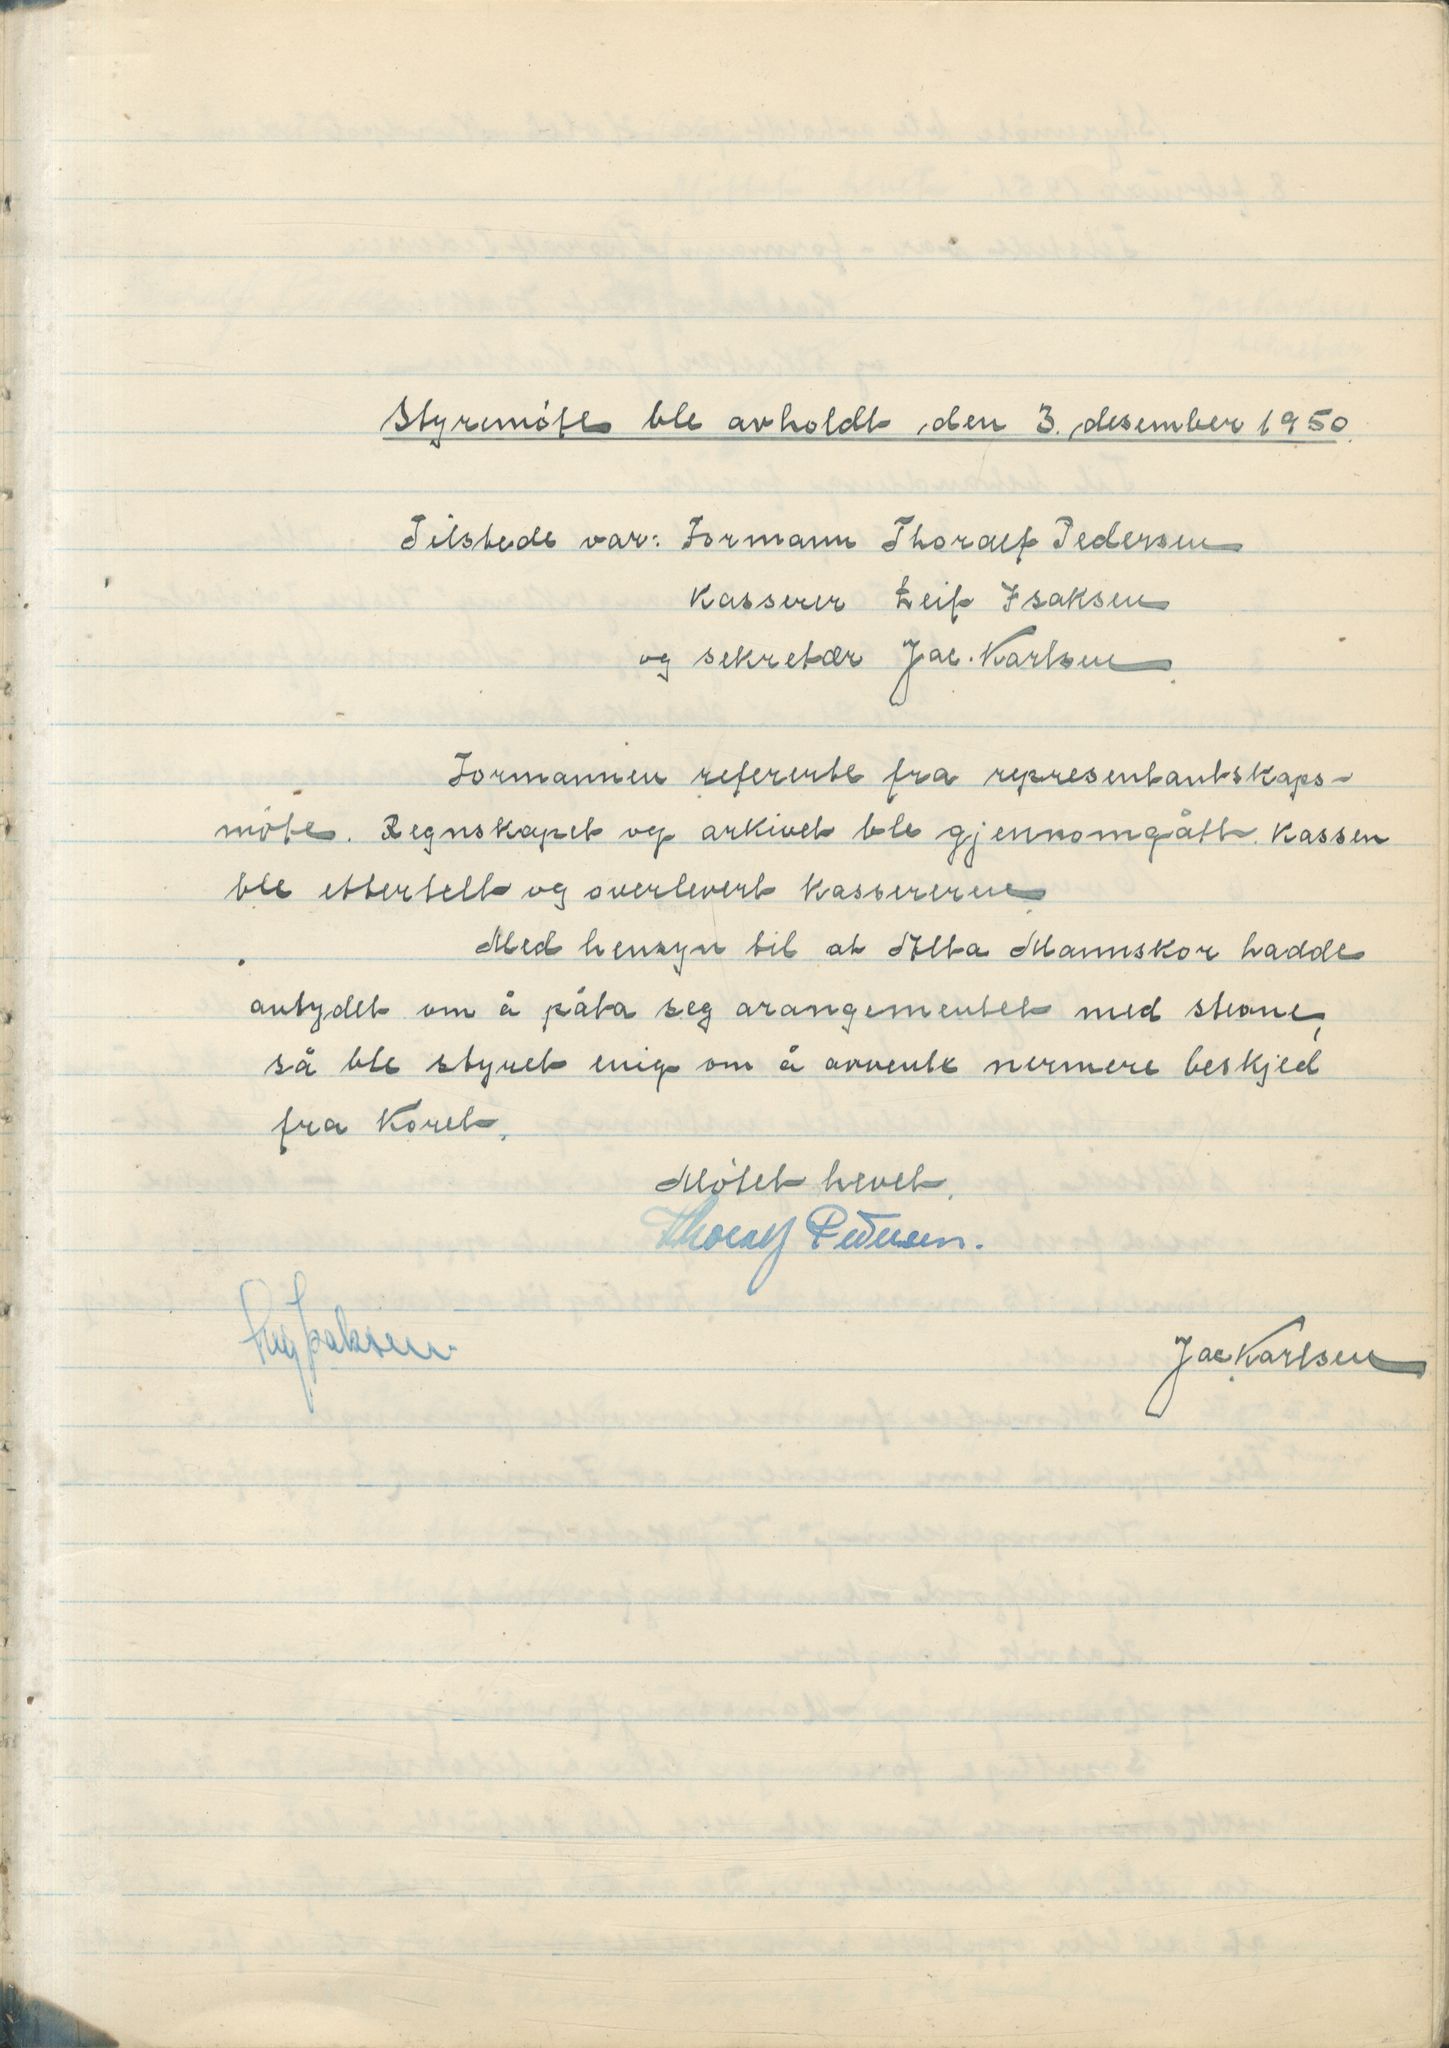 Styremöte ble avholdt den 3. desember 1950.
Tilstede var: Formann Thoralf Pedersen
Kasserer Leif Isaksen
og sekretær Jac. Karlsen.
Formannen refererte fra representantskaps-
möte. Regnskapet og arkivet ble gjennomgått. Kassen
ble ettertelt og overlevert kassereren
Med hensyn til at Alta Mannskor hadde
antydet om å påta seg arangementet med stevne,
så ble styret enig om å avvente nermere beskjed
fra Koret.
Mötet hevet.
Thoralf Pedersen.
Leif Isaksen.
Jac Karlsen